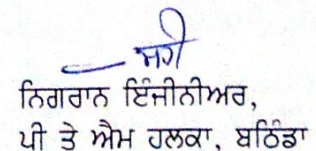 ਸਹੀ
ਨਿਗਰਾਨ ਇੰਜੀਨੀਅਰ,
ਪੀ ਤੇ ਐਮ ਹਲਕਾ, ਬਠਿੰਡਾ